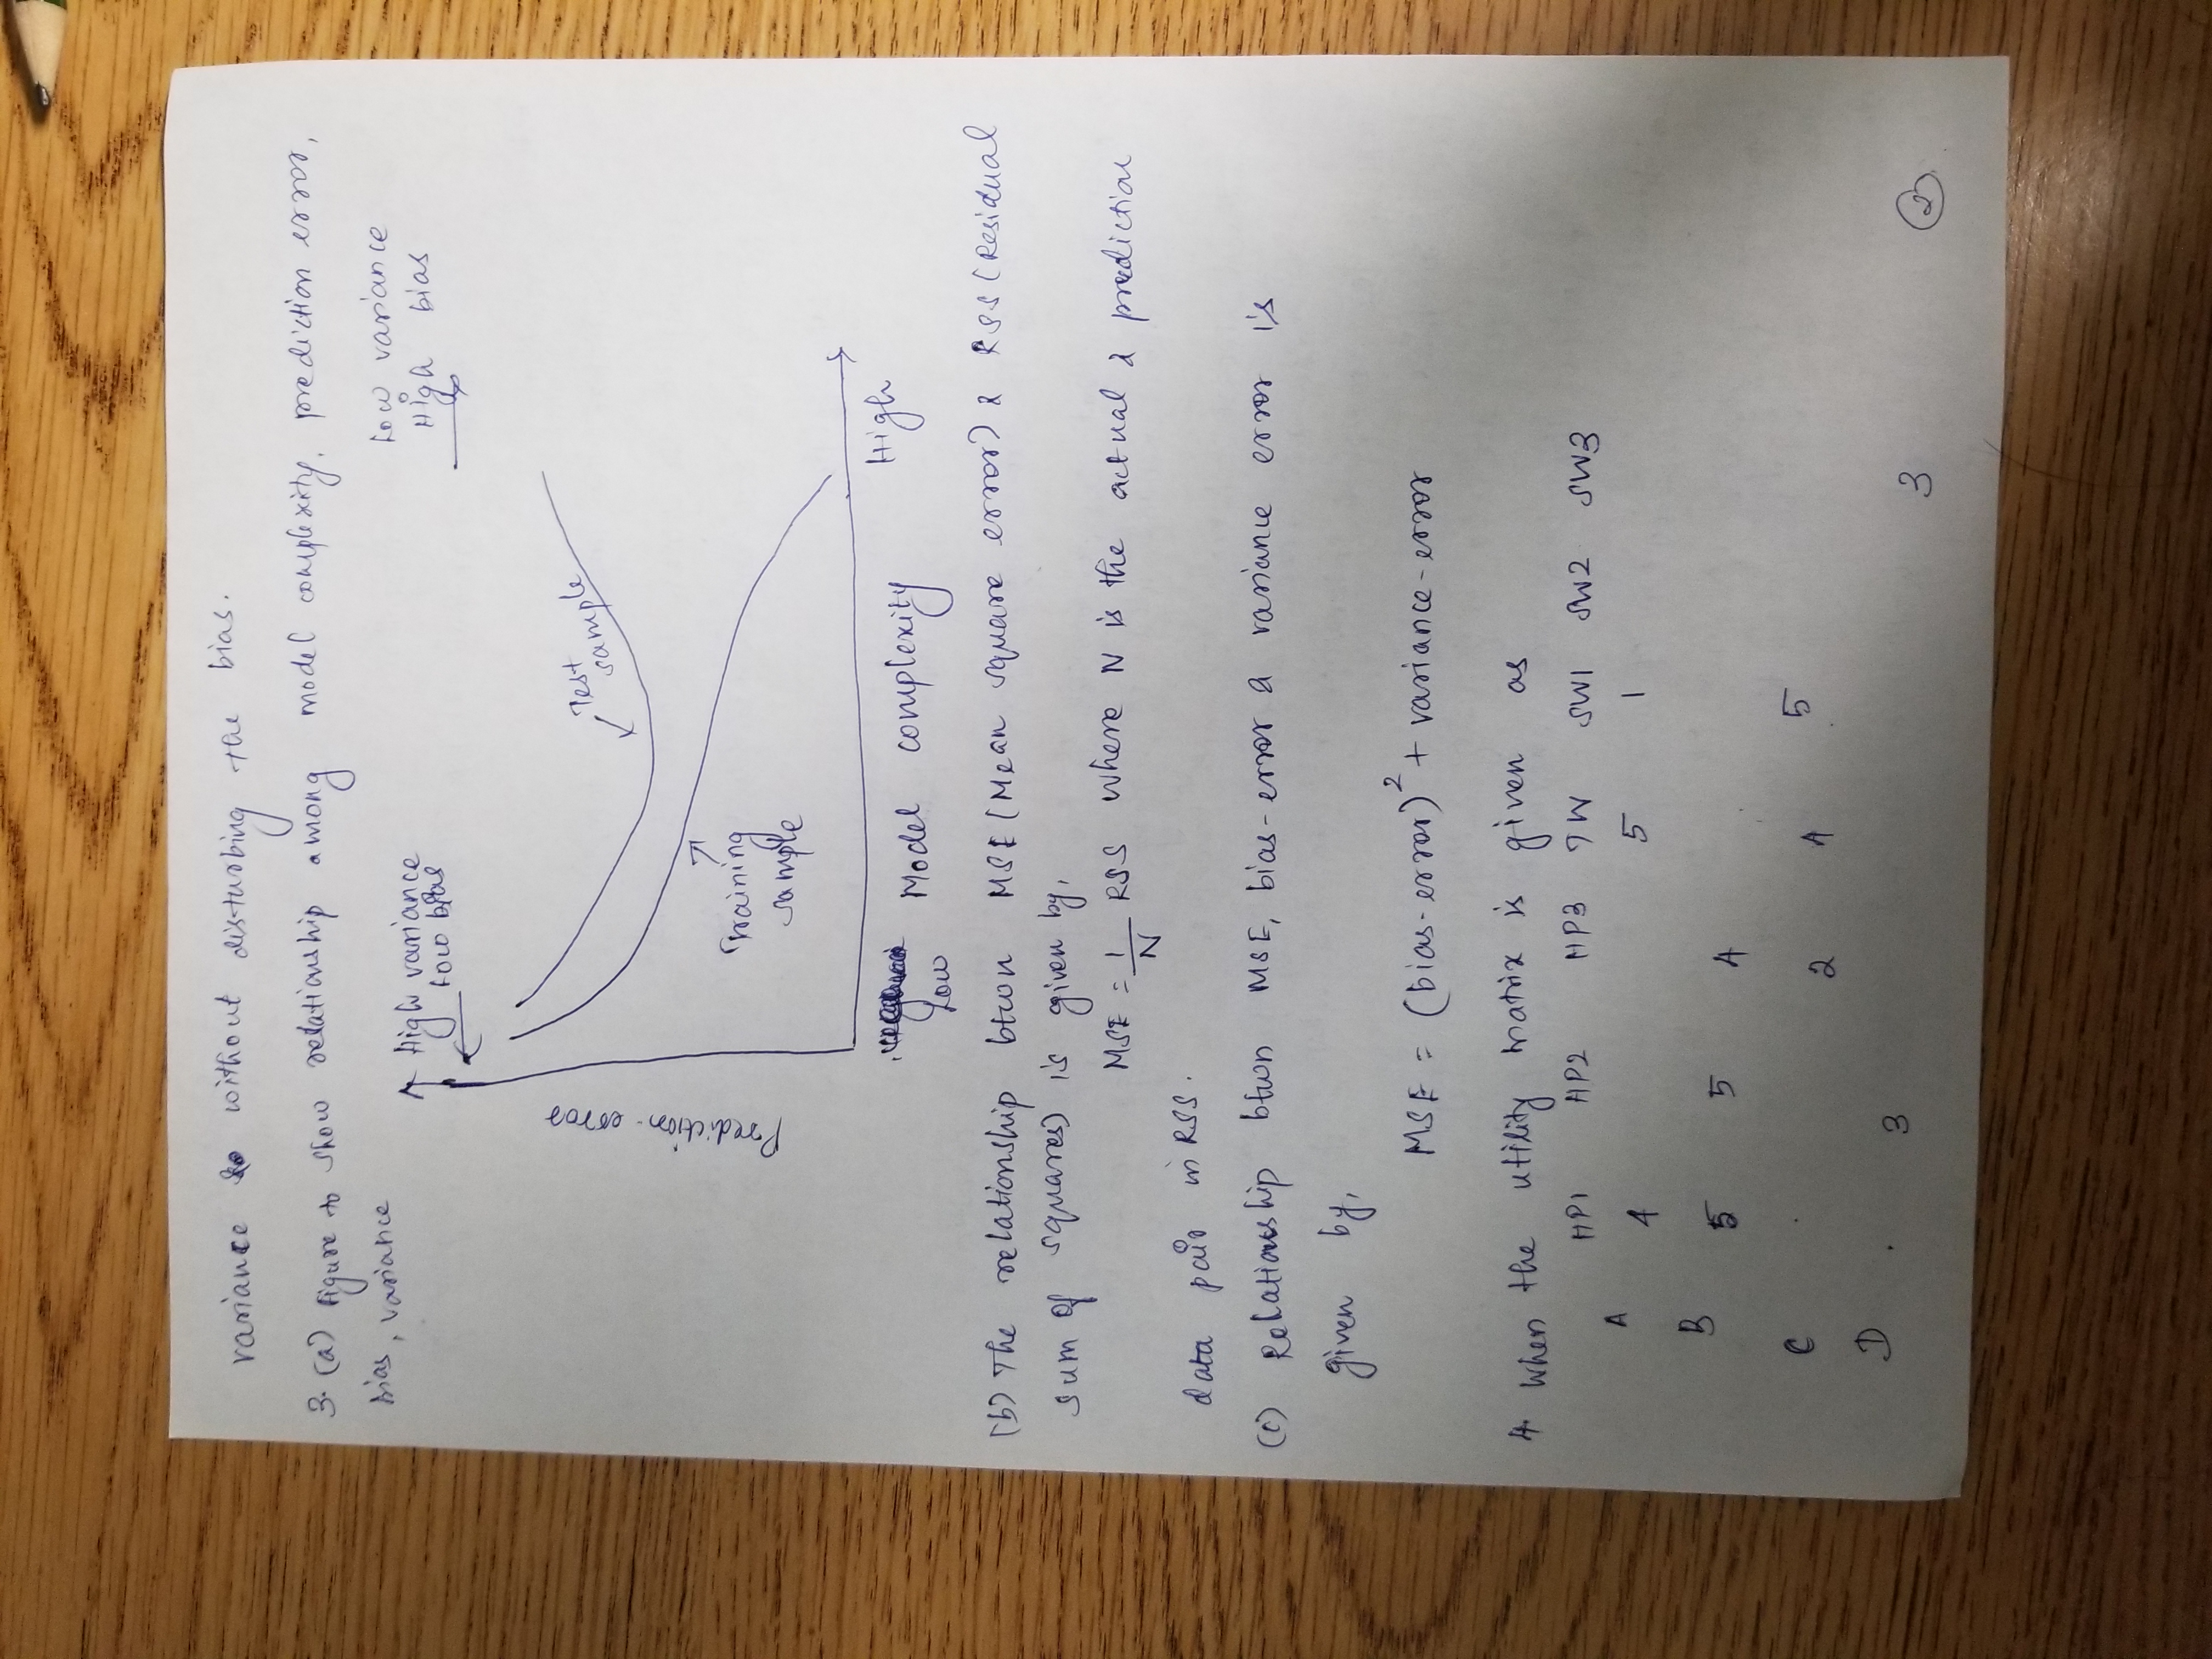 variance without disturbing the bias.
3. (a) Figure to show relationship among model complexity, prediction error,
bias, variance
High variance
Low bias
Low variance
High bias
Prediction-error
Test
sample
Training
sample
Low
Model complexity
High
(b) The relationship btwn MSE (Mean square error) & RSS (Residual
sum of squares) is given by,
MSE = 1/N RSS where N is the actual & prediction
data pair in RSS.
(c) Relationship btwn MSE, bias-error & variance error is
given by,
MSE = (bias-error)² + variance-error
4. When the utility matrix is given as
HP1 HP2 HP3 TW SW1 SW2 SW3
A 4 5 1
B 5 5 4
C 2 4 5
D 3 3
2